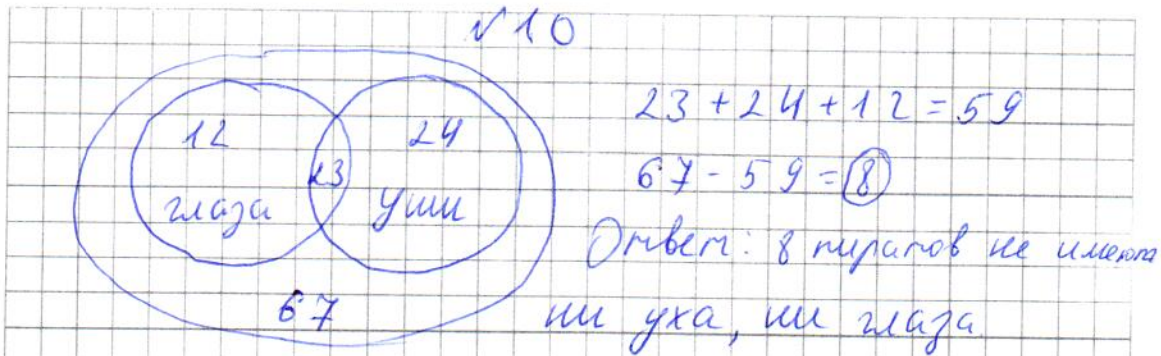 №10
12
24
23
глаза
уши
67
23 + 24 + 12 = 59
67 - 59 = 8
Ответ: 8 пиратов не имеют
ни уха, ни глаза